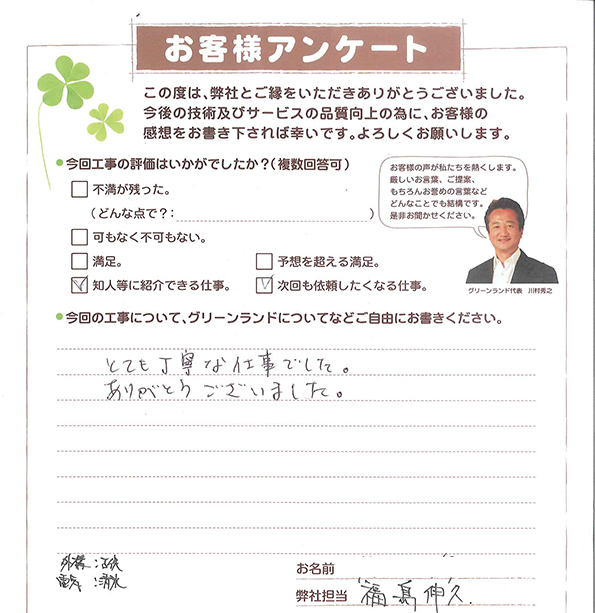 お客様アンケート
この度は、弊社とご縁をいただきありがとうございました。
今後の技術及びサービスの品質向上の為に、お客様の
感想をお書き下されば幸いです。よろしくお願いします。
●今回工事の評価はいかがでしたか?(複数回答可)
不満が残った。
(どんな点で?: )
可もなく不可もない。
満足。
予想を超える満足。
知人等に紹介できる仕事。
次回も依頼したくなる仕事。
お客様の声が私たちを熱くします。
厳しいお言葉、ご提案、
もちろんお誉めの言葉など
どんなことでも結構です。
是非お聞かせください。
グリーンランド代表 川村秀之
●今回の工事について、グリーンランドについてなどご自由にお書きください。
とても丁寧な仕事でした。
ありがとうございました。
外構:
電気:清水
お名前
弊社担当 福島伸久